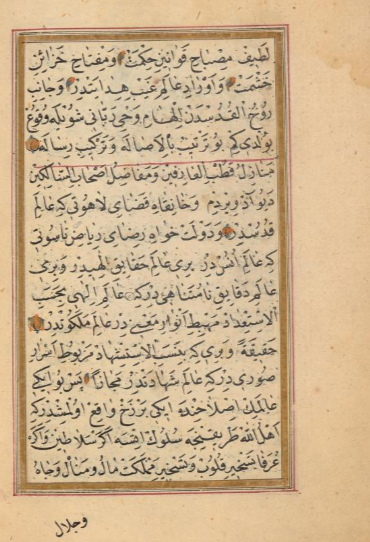 لطیف مصباح قوانین حکمت و مفتاح خزائن
حشمت و اوراد عالم غیب هدایتدر و جانب
روح القدسدن الهام و وحی ربانی شویله وقوع
بولدی کم بو ترتیب بالاصاله و ترکیب رساله
منازل قطب العارفین و مفاصل اصحاب السالکین
دیو آد ویردم و خانقاه فضای لاهوتی که عالم
قدسدر و دولت خواه رضای ریاض ناسوتی
که عالم انسدر بری عالم حقایق الهیدر و بری
عالم دقایق نامتناهیدر که عالم الهی بحسب
الاستعداد مهبط انوار معنیدر عالم ملکوتدر
حقیقة و بری که بنسب الاستشهاد مربوط اسرار
صوریدر که عالم شهادتدر مجازا پس بو ایکی
عالمک اصلاحنده ایکی برزخ واقع اولمشدر که
اهل الله طریقنجه سلوک ایتسه اگر سلاطین و اگر
عرفا بتسخیر قلوب و بتسخیر مملکت مال و منال و جاه
و جلال